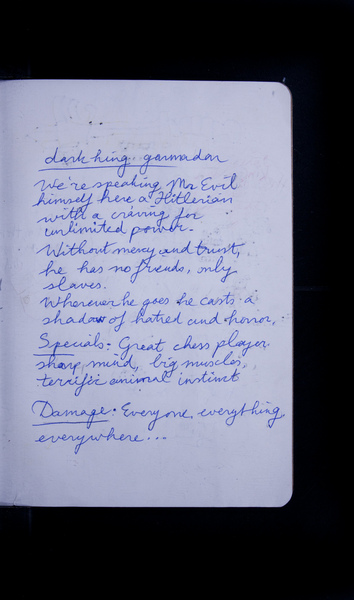 dark king garmadon
We're speaking Mr Evil
himself here a Hitlerian
with a craving for
unlimited power.
Without mercy and trust,
he has no friends, only
slaves.
Wherever he goes he casts a
shadow of hatred and horror,
Specials: Great chess player.
sharp mind, big muscles,
terrific animal instinct
Damage: Everyone, everything,
everywhere...